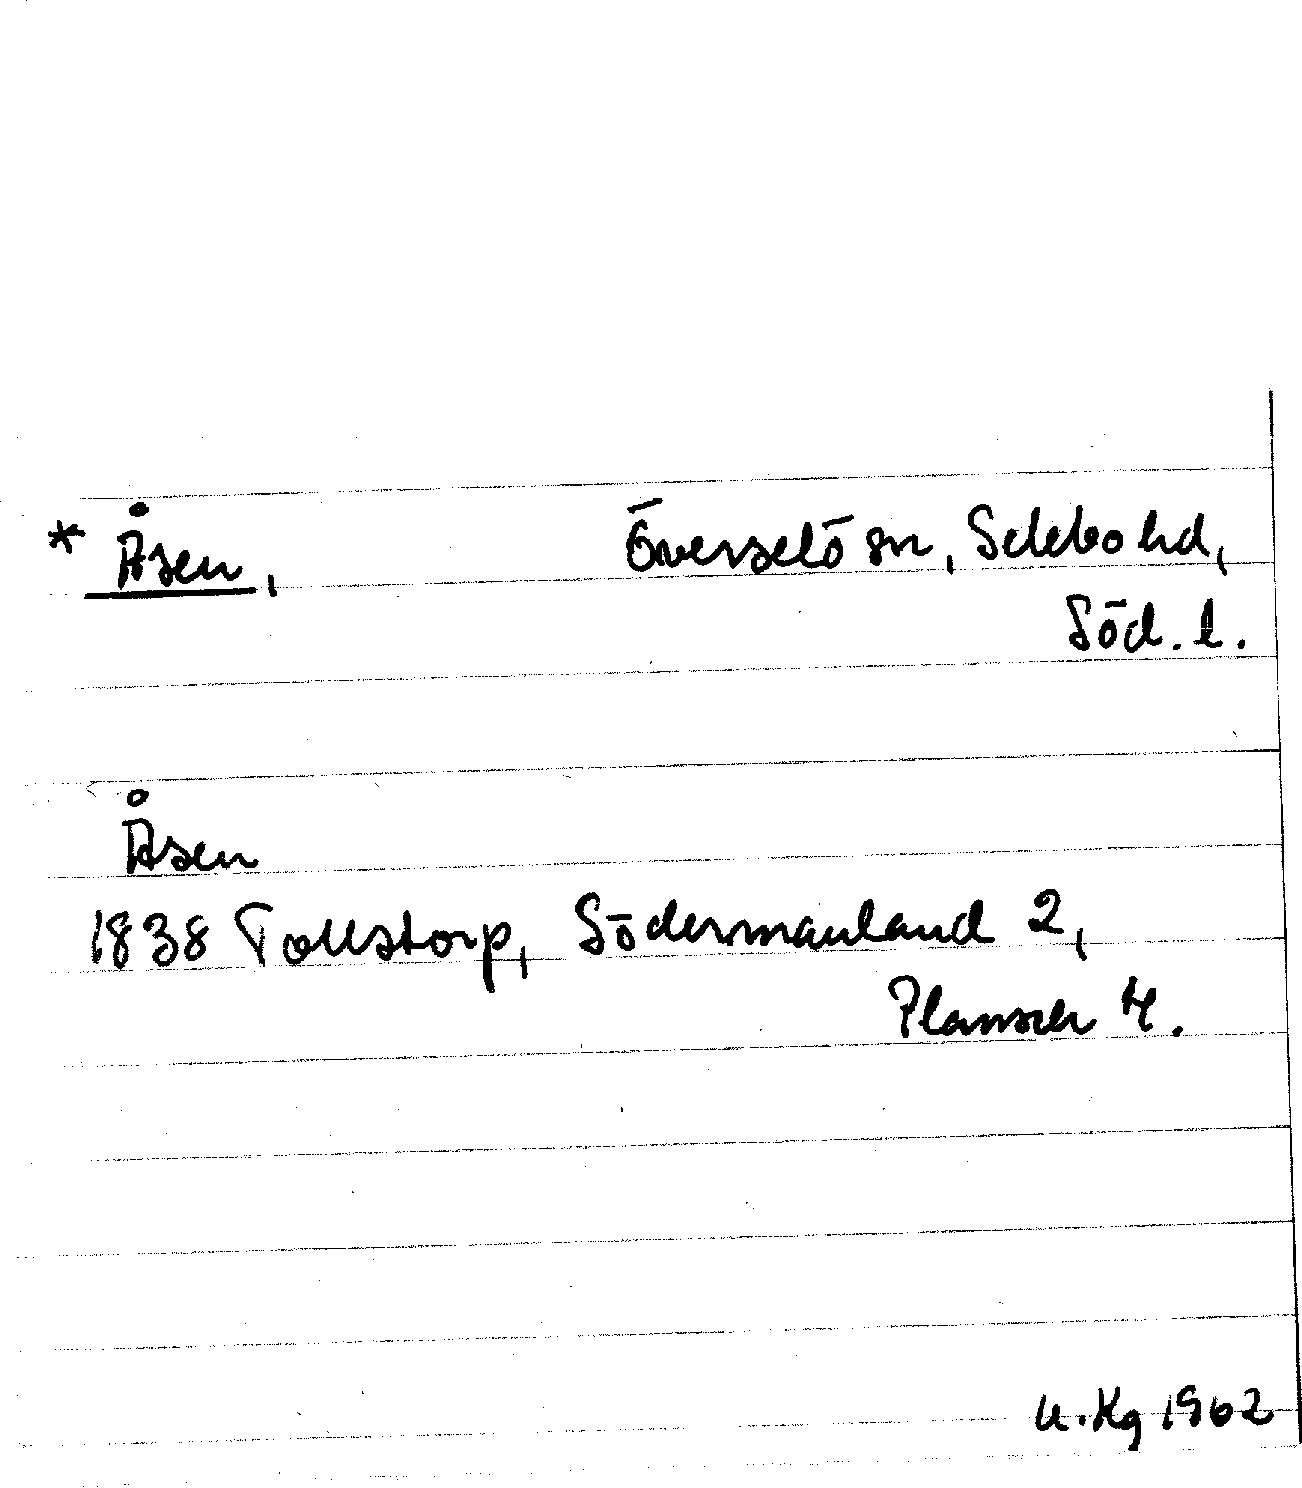 * Åsen, Överselö sn, Selebo hd,
Söd. l.
Åsen
1838 Tollstorp, Södermanland 2,
Planscher 4.
K. Hg 1962